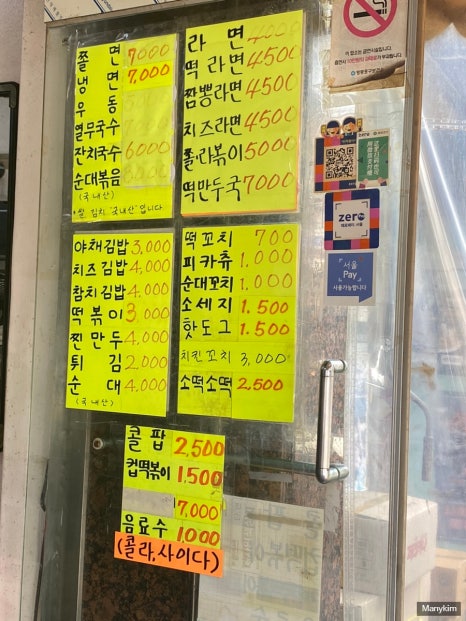 쫄면 7000
냉면 7,000
우동
열무국수
잔치국수 6000
순대볶음
(국내산)
*쌀, 김치 "국내산"입니다
라면 4000
떡라면 4500
짬뽕라면 4500
치즈라면 4500
쫄라볶이 5000
떡만두국 7000
야채김밥 3,000
치즈김밥 4,000
참치김밥 4,000
떡볶이 3,000
찐만두 4,000
튀김 2,000
순대 4,000
(국내산)
떡꼬치 700
피카츄 1,000
순대꼬치 1,000
소세지 1.500
핫도그 1.500
치킨꼬치 3,000
소떡소떡 2,500
콜팝 2,500
컵떡볶이 1,500
7,000
음료수 1000
(콜라,사이다)
zero
제로페이 서울
서울
Pay
사용가능합니다
Manykim